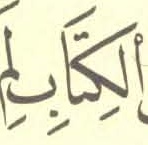 ٱلكِتَابِ لِمَ